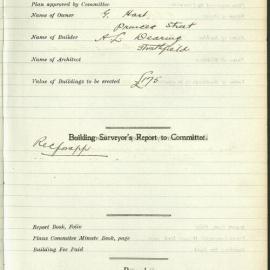 Plan approved by Committee
Name of Owner G. Hart
Princes Street
Name of Builder A L Dearing
Strathfield
Name of Architect
Value of Buildings to be erected £175
Building Surveyor's Report to Committee
Rec for app
Report Book, Folio
Plans Committee Minute Book, page
Building Fee Paid